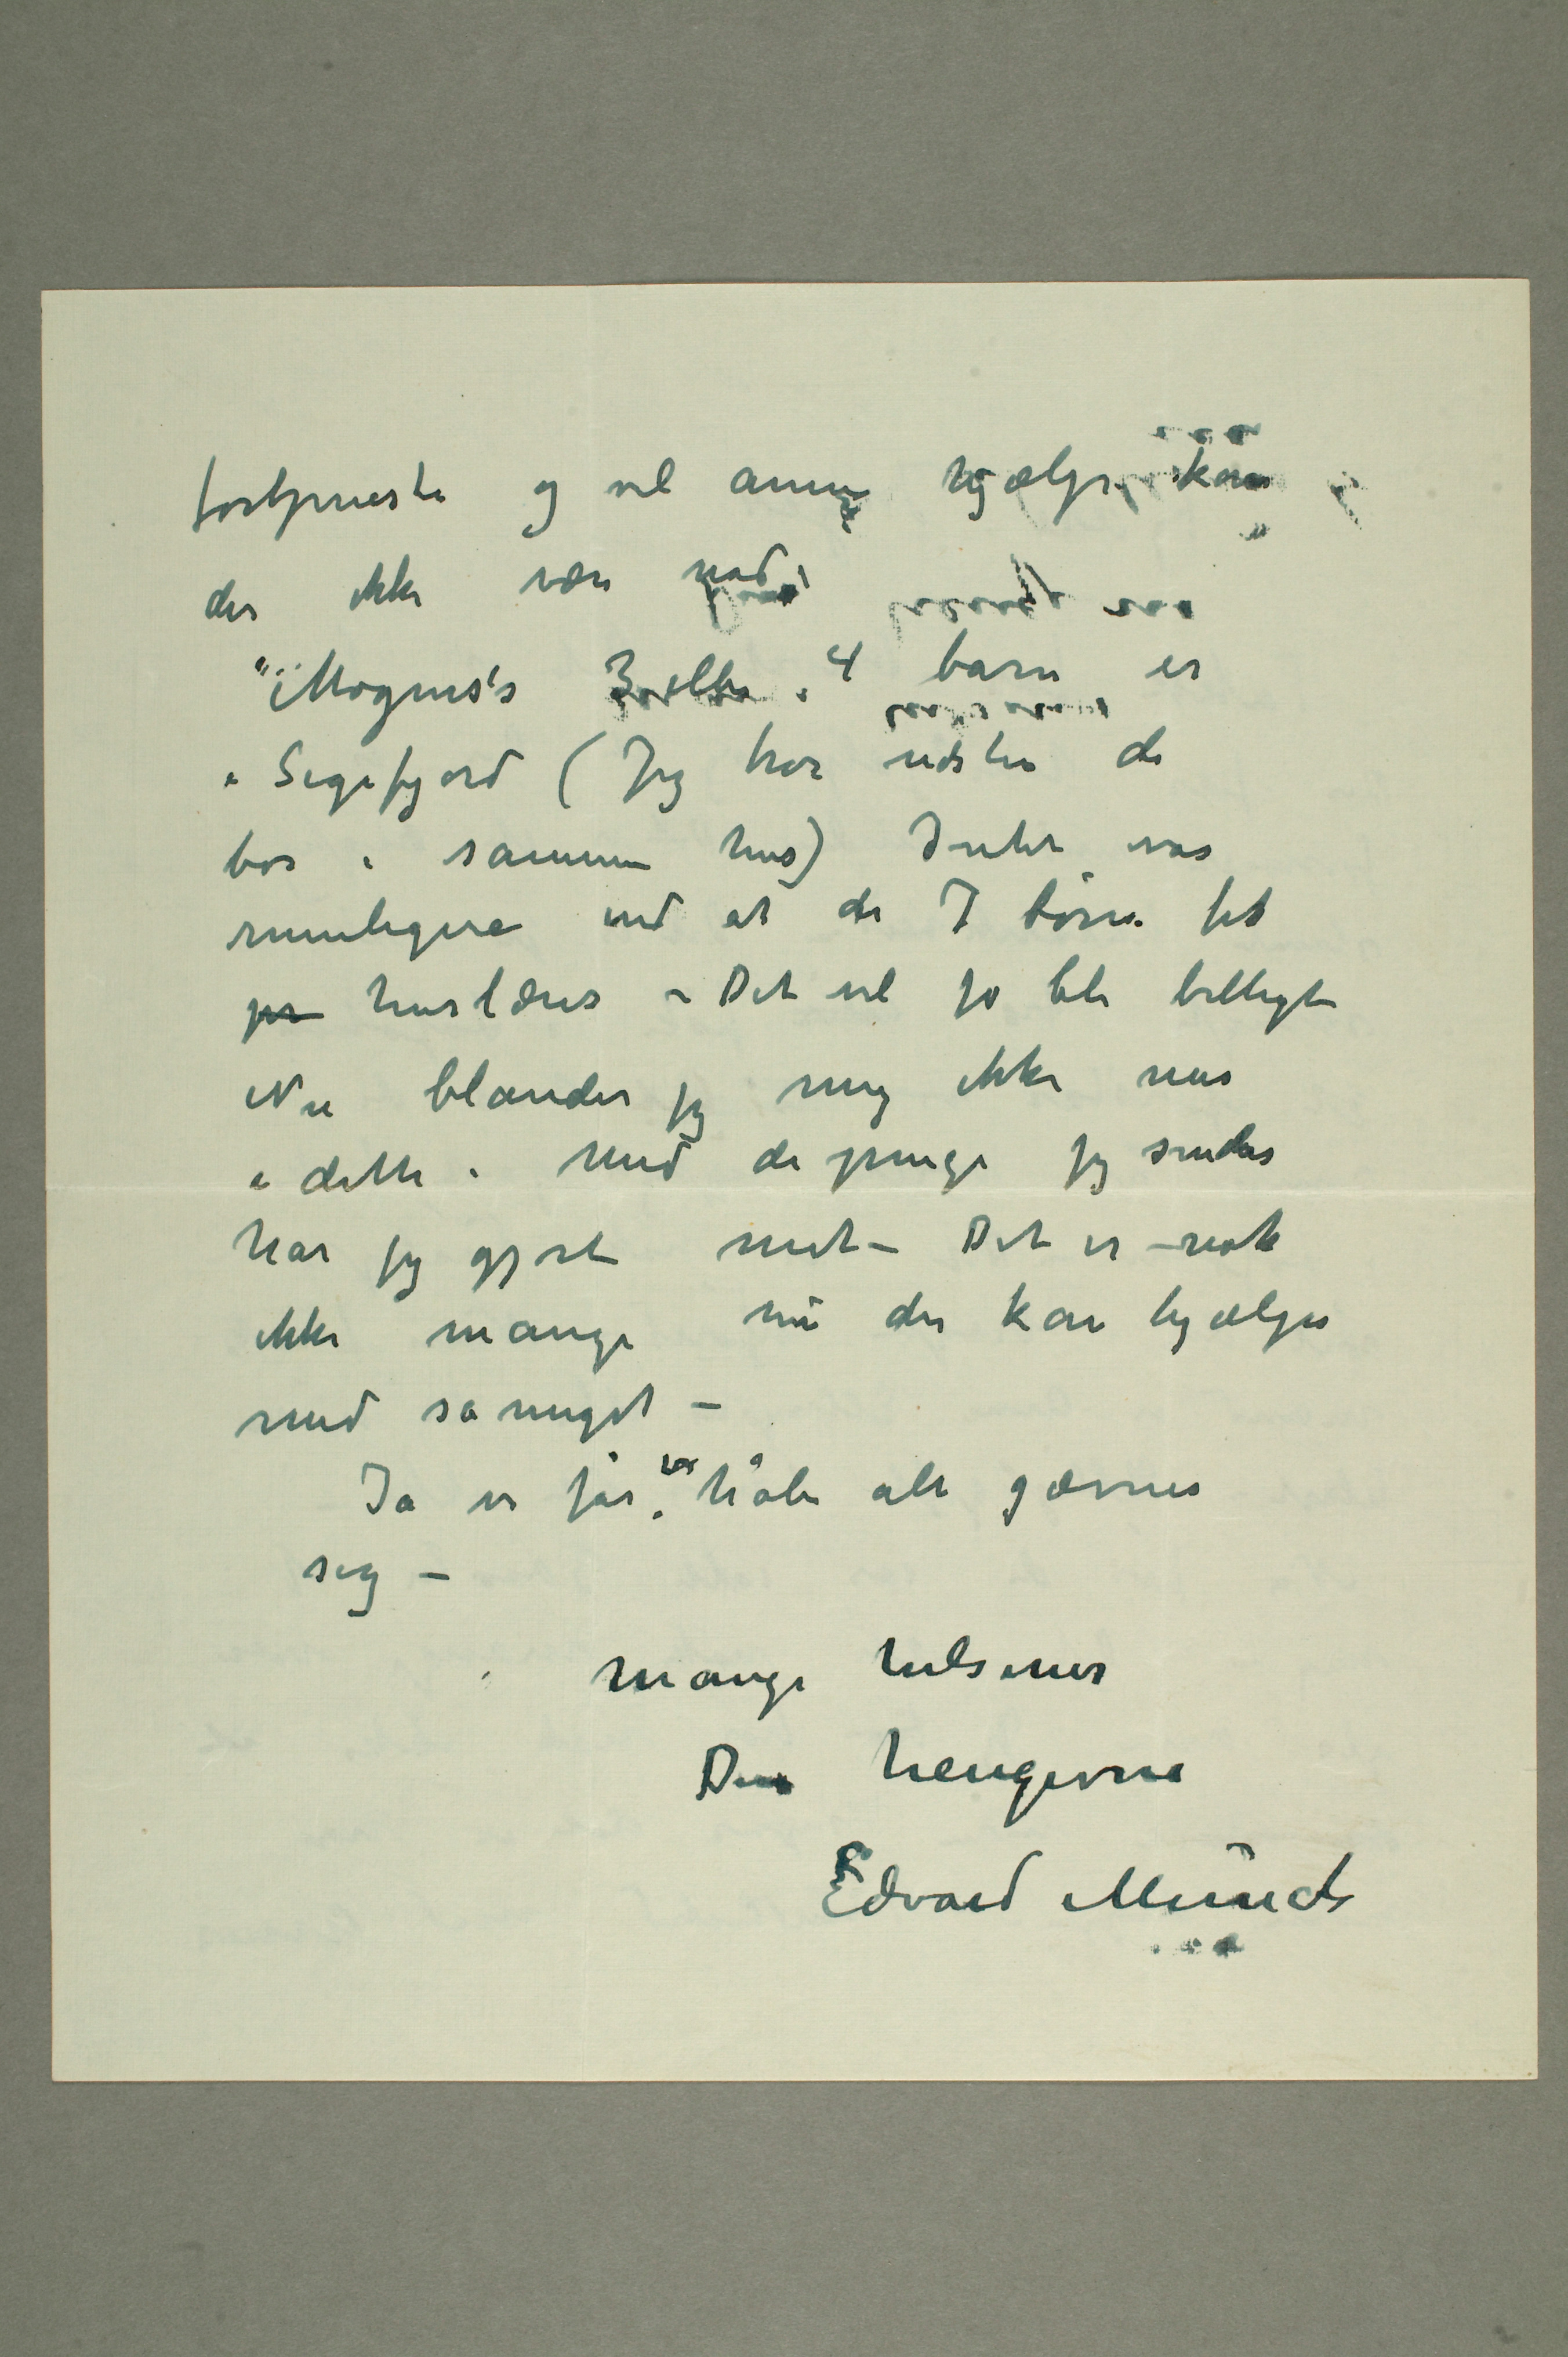 fortjeneste og vel annen hjælp kan
der ikke være nød
Mognes's 3 eller 4 barn er
i Sigefjord (Jeg tror nesten de
bor i samme hus) Intet var
rimeligere end at de 7 børn fik
huslærer – Det vil jo bli billigt
Nu blander jeg mig ikke mer
i dette. Med de penge jeg sender
har jeg gjort mit – Det er nok
ikke mange nu der kan hjælpe
med så meget –
Ja vi får håbe alt jævner
sig –
Mange hilsener
Din hengivne
Edvard Munch